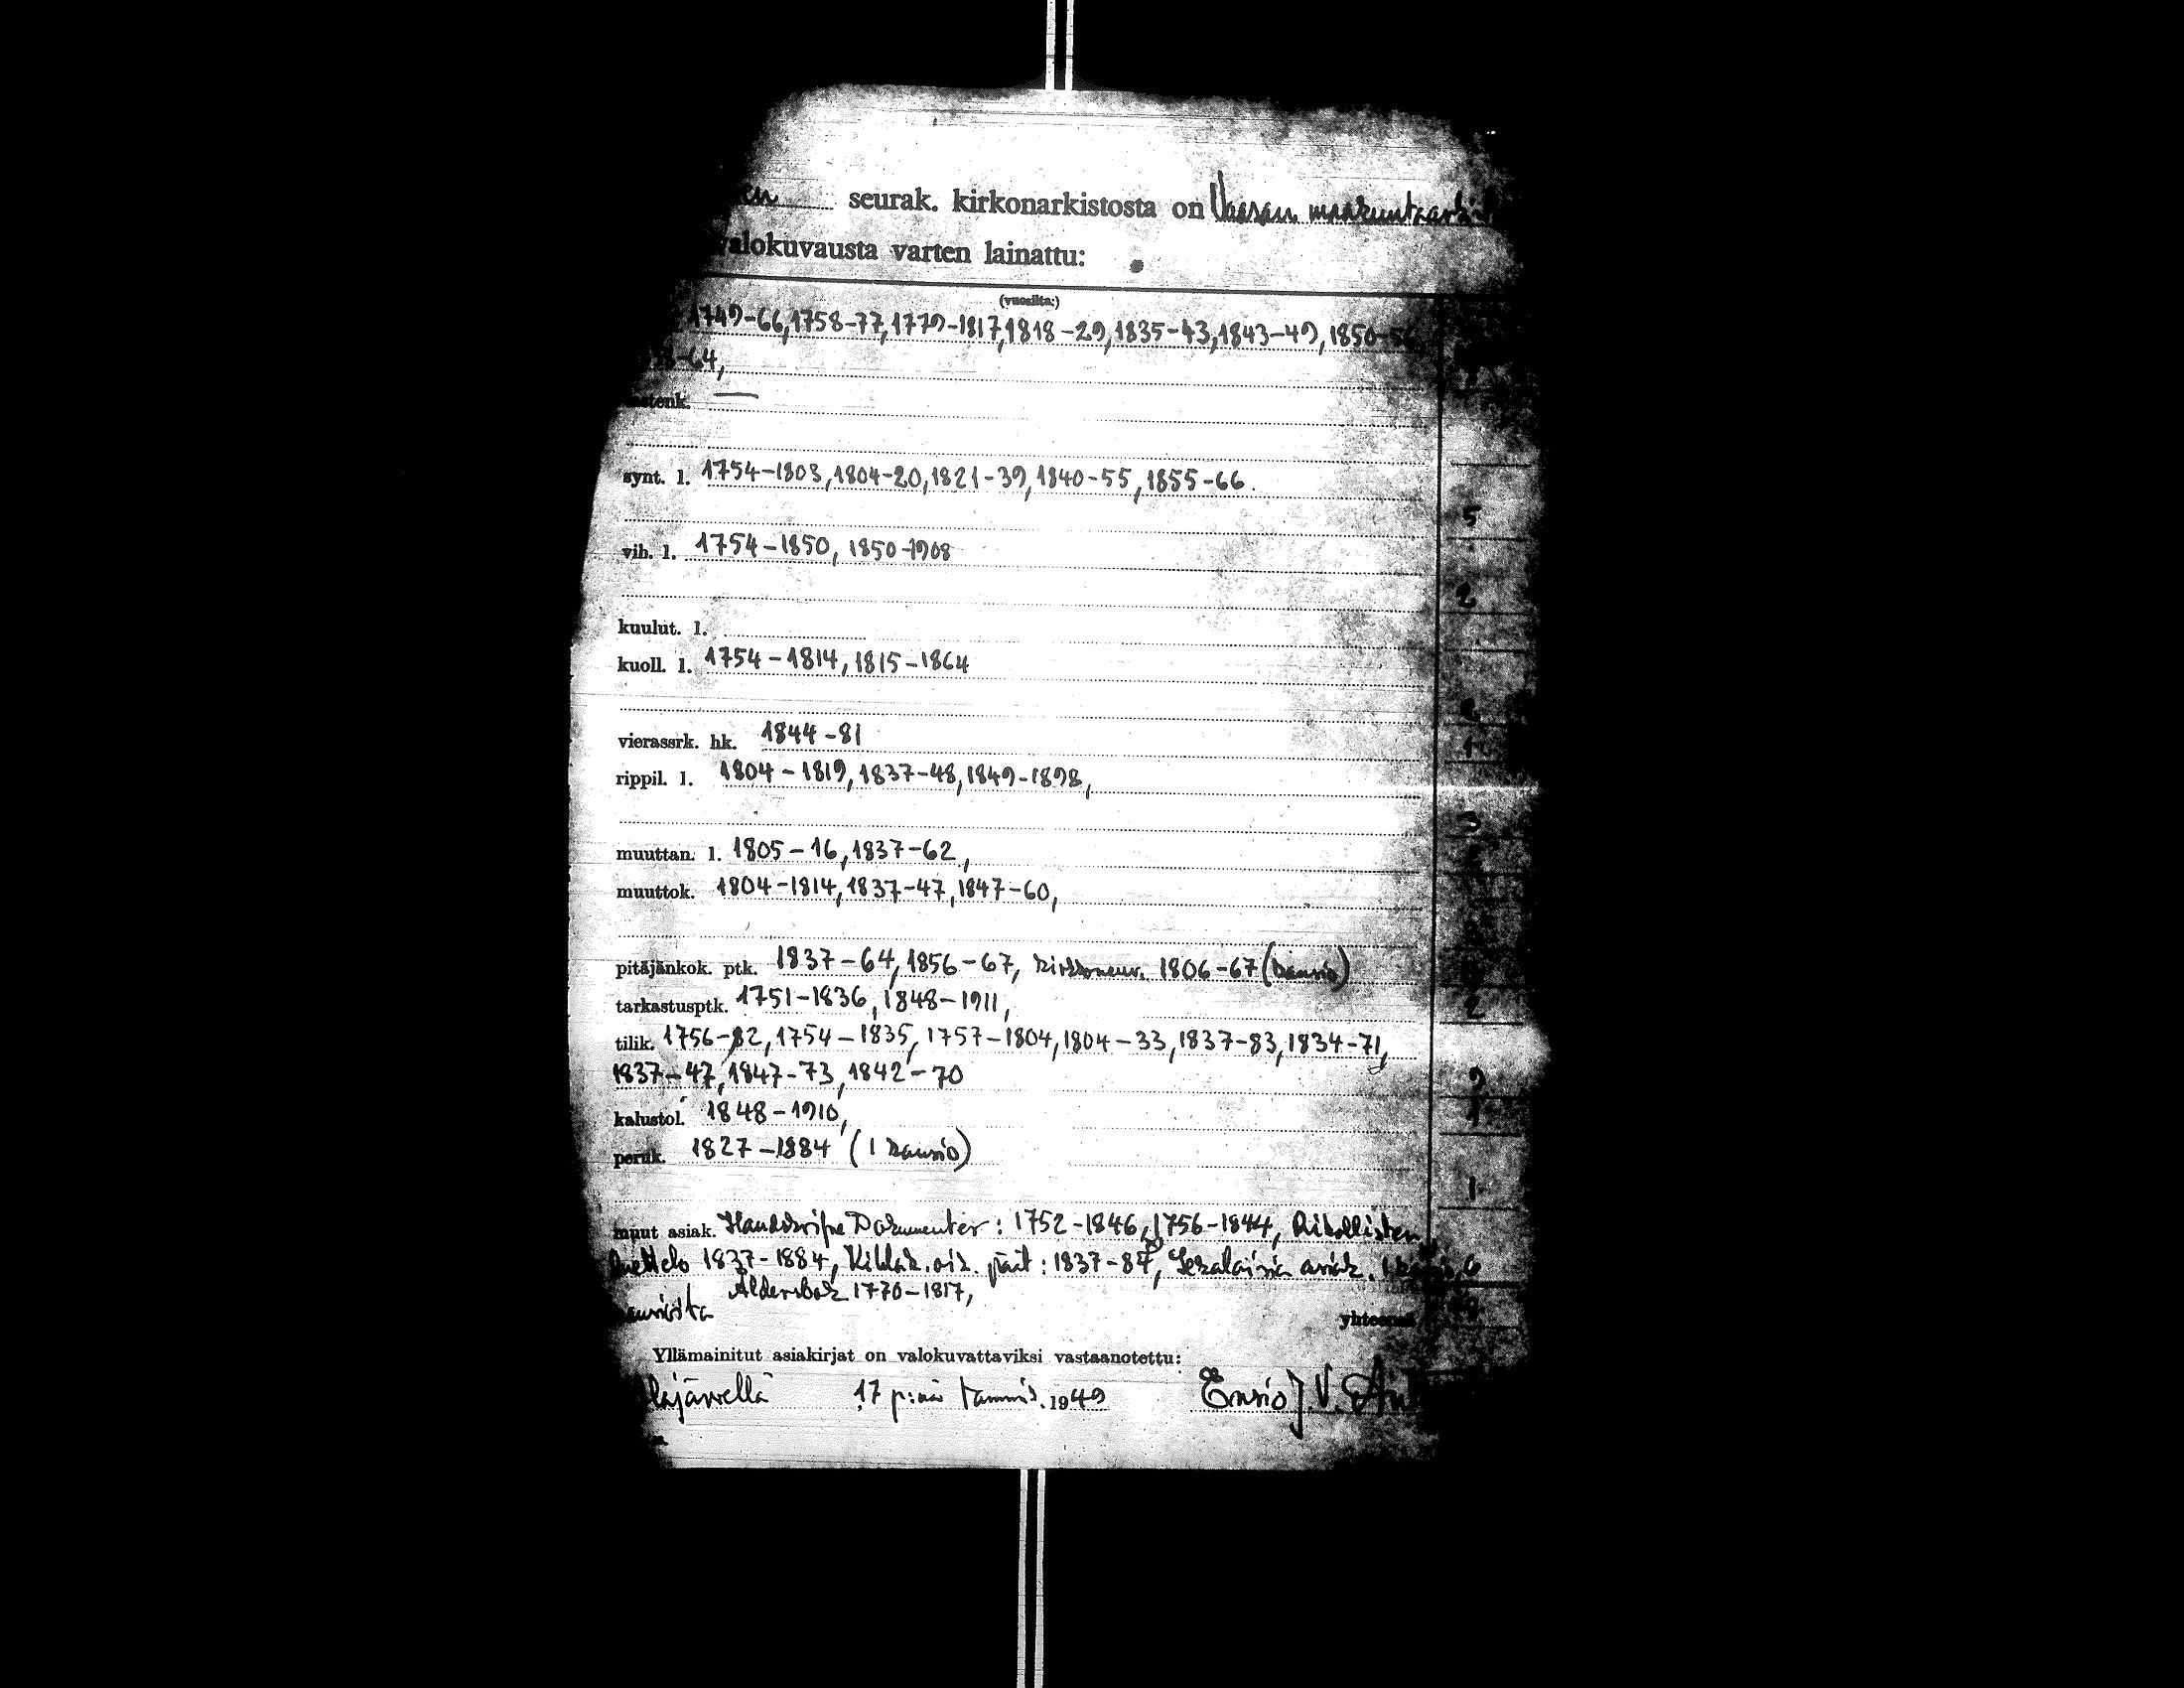 seurak. kirkonarkistosta on Vaasan maakuntaark
valokuvausta varten lainattu:
(vuosilta:)
1749-66, 1758-77, 1779-1817, 1818-29, 1835-43, 1843-49, 1850-56
-64,
synt. l. 1754-1803, 1804-20, 1821-39, 1840-55, 1855-66.
5
vih. l. 1754-1850, 1850-1908
2
kuulut. l.
kuoll. l. 1754-1814, 1815-1864
vierassrk. hk. 1844-81
1
rippil. l. 1804-1819, 1837-48, 1849-1898,
3
muuttan. l. 1805-16, 1837-62,
muuttok. 1804-1814, 1837-47, 1847-60,
pitäjänkok. ptk. 1837-64, 1856-67, kirkkoneuv. 1806-67 (kansio)
tarkastusptk. 1751-1836, 1848-1911,
2
tilik. 1756-82, 1754-1835, 1757-1804, 1804-33, 1837-83, 1834-71,
1837-47, 1847-73, 1842-70
9
kalustol. 1848-1910,
1
peruk. 1827-1884 (1 kansio)
1
muut asiak. Handskrifne Dokumenter: 1752-1846, 1756-1844, Rikollisten
luettelo 1837-1884, Kihlak. oik. päät: 1837-84, Sekalaisia asiak. 6
Åldersbok 1770-1817,
yhteensä
Yllämainitut asiakirjat on valokuvattaviksi vastaanotettu:
lajärvellä 17 p:nä tammik. 1949 Ensio J. V.